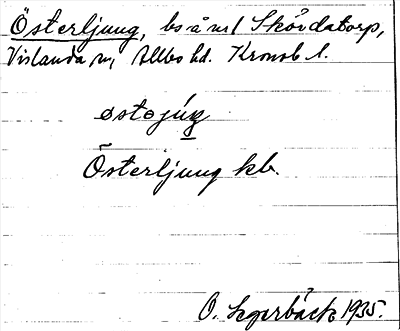 Österljung, bs å nr 1 Skördatorp,
Vislanda sn, Allbo hd. Kronob l.
østəjúŋ
Österljung kb.
O. Segerbäck 1935.